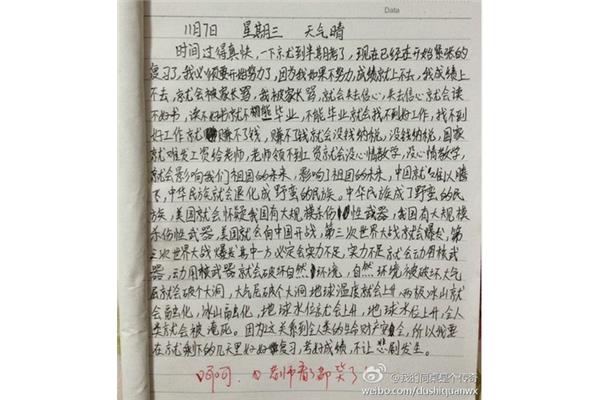 Data
11月7日 星期三 天气晴
时间过得真快,一下就到半期考了,现在已经在开始紧张的
复习了,我必须要开始努力了,因为我如果不努力,成绩就上不去,我成绩上
不去,就会被家长骂,我被家长骂,就会失去信心,失去信心就会读
不好书,读不好书就不能毕业,不能毕业就会找不到好工作,找不到
好工作就赚不了钱,赚不了钱就会没钱纳税,没钱纳税,国家
就难发工资给老师,老师领不到工资就会没心情教学,没心情教学,
就会影响我们祖国的未来,影响了祖国的未来,中国就难以腾
飞,中华民族就会退化成野蛮的民族。中华民族成了野蛮的民
族,美国就会怀疑我国有大规模杀伤性武器,我国有大规模
杀伤性武器,美国就会向中国开战,第三次世界大战就会爆发,第
三次世界大战爆发其中一方必定会实力不足,实力不足就会动用核武
器,动用核武器就会破坏自然环境,自然环境被破坏大气
层就会破个大洞,大气层破个大洞地球温度就会上升,两极冰山就
会融化,冰山融化,地球水位就会上升,地球水位上升,全人
类就会被淹死。因为这关系到全人类的生命财产安全,所以我要
在就剩下的几天里好好复习,考好成绩,不让悲剧发生。
呵呵 老师看了都笑了
@我的同桌是个传奇
weibo.com/dushiquanwx